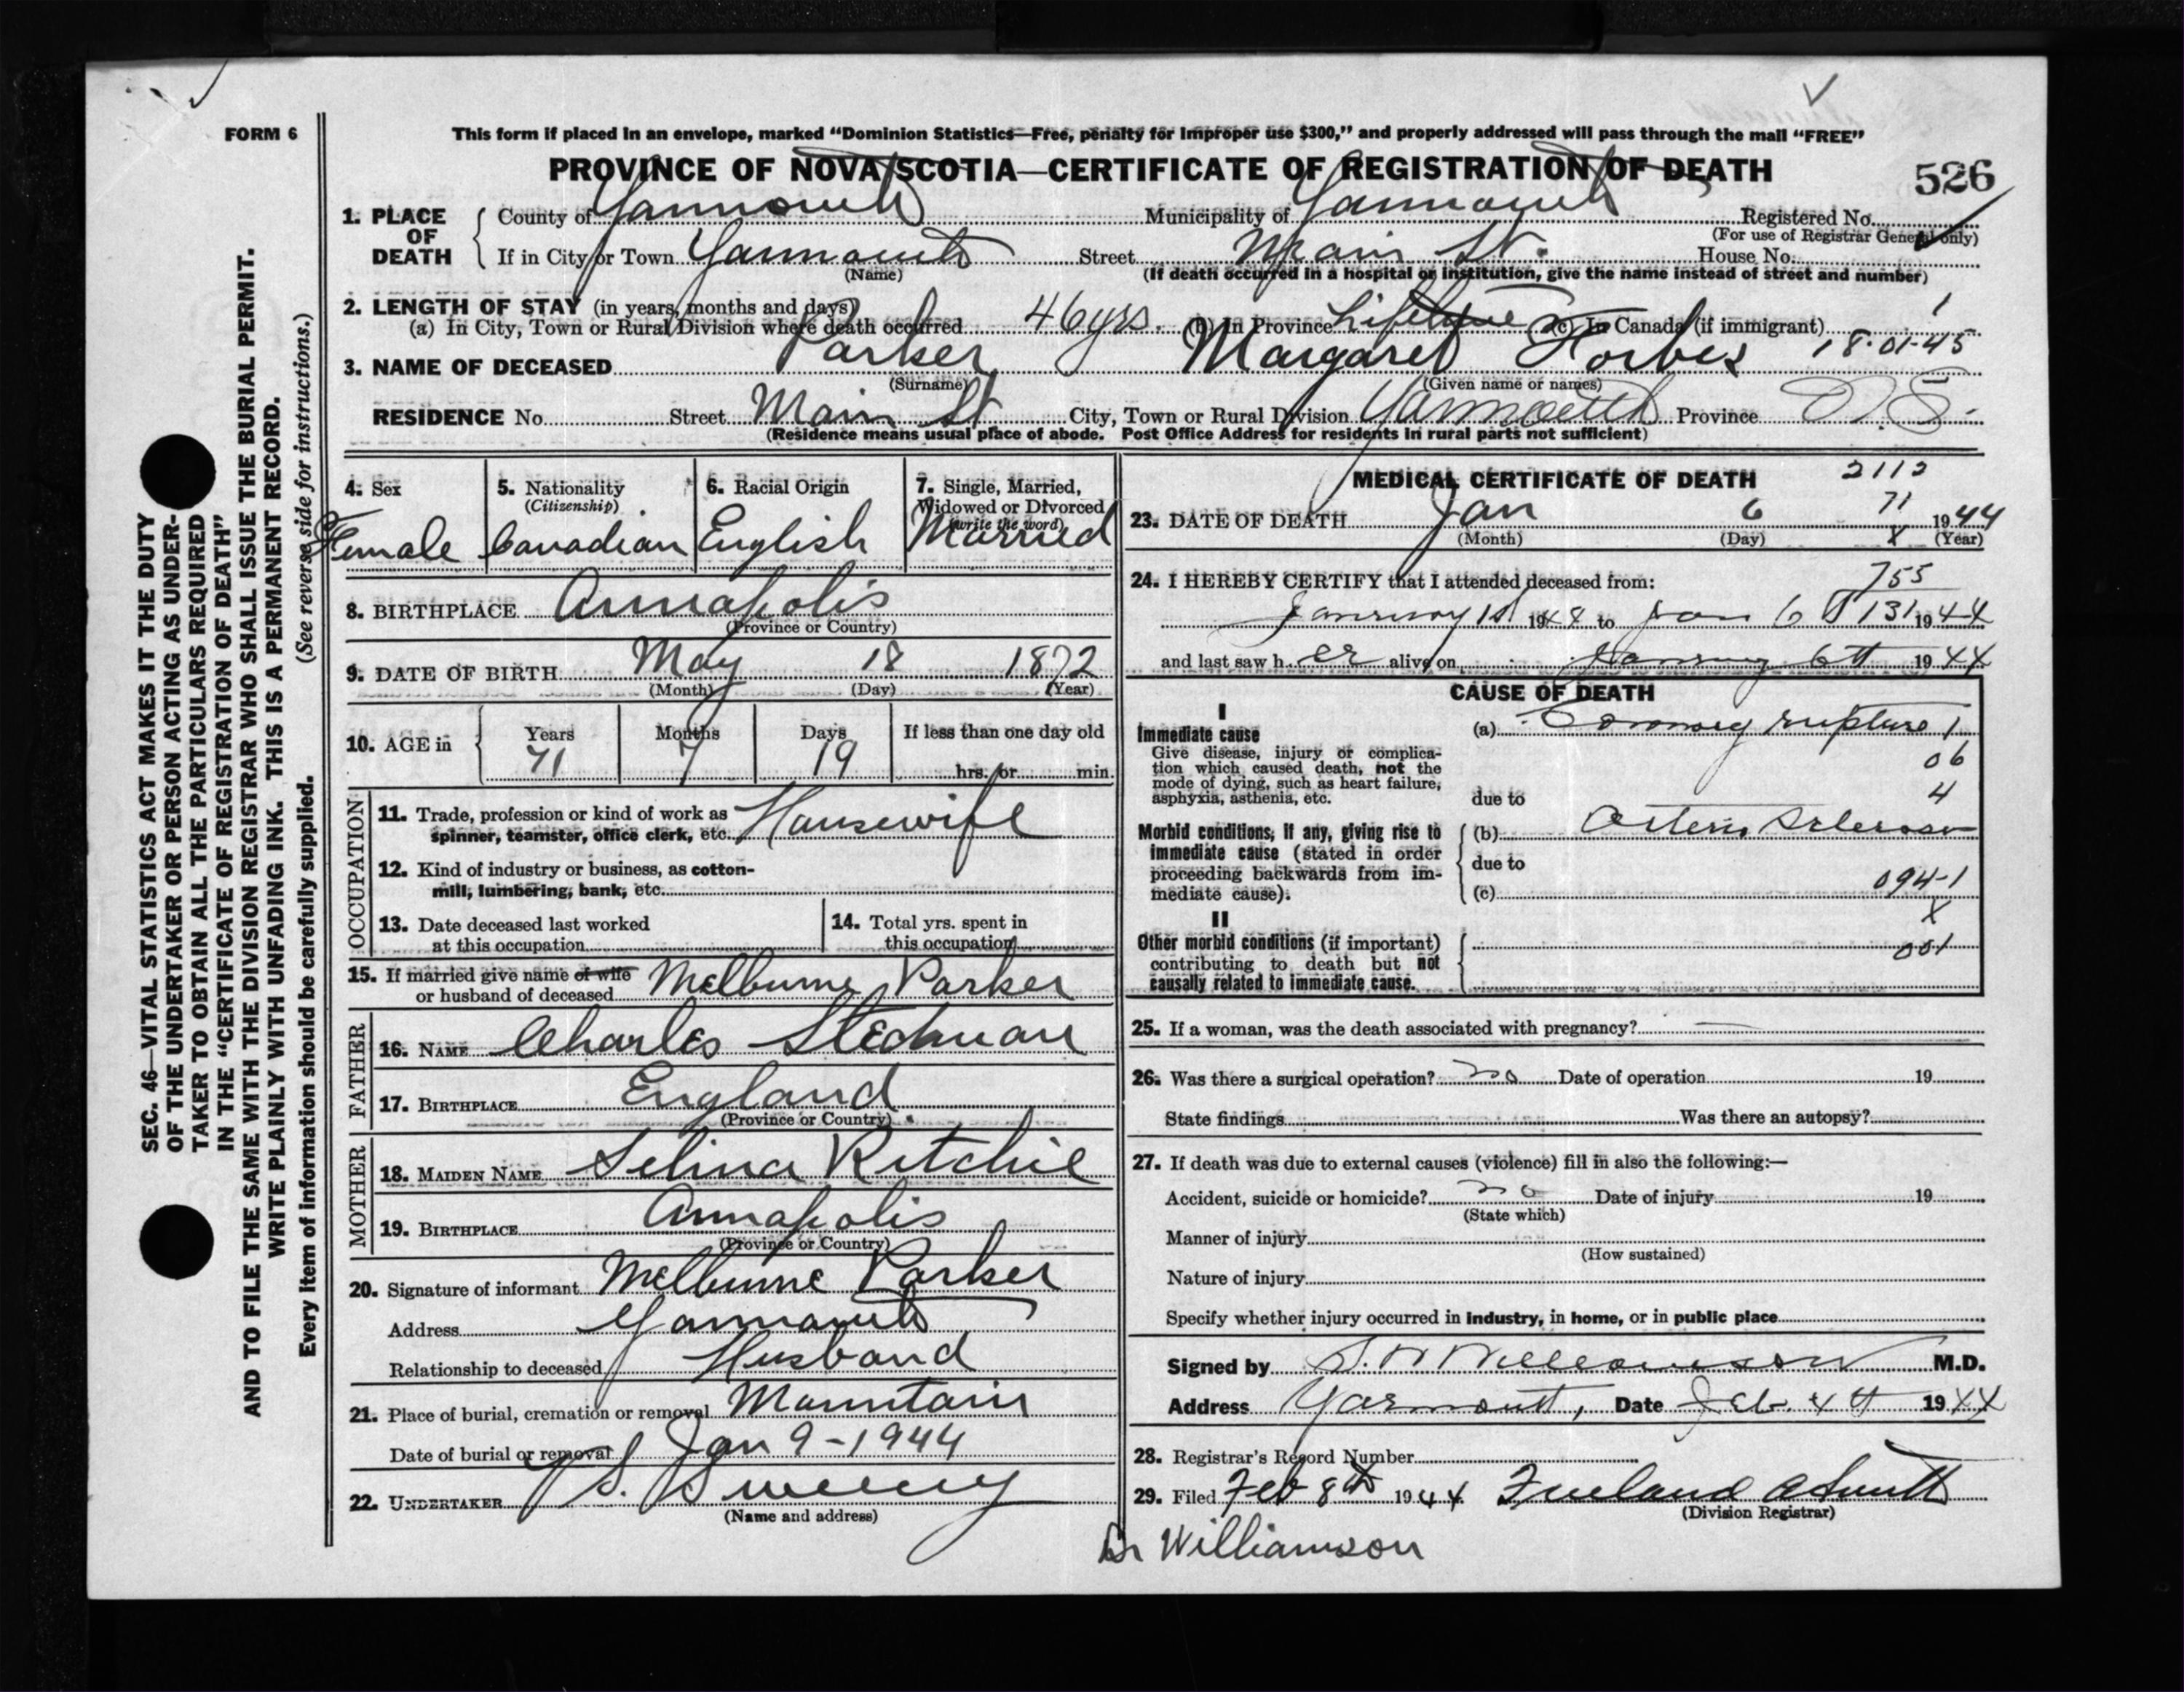 FORM 6
This form if placed in an envelope, marked “Dominion Statistics—Free, penalty for improper use $300,” and properly addressed will pass through the mail “FREE”
PROVINCE OF NOVA SCOTIA—CERTIFICATE OF REGISTRATION OF DEATH
526
1. PLACE OF DEATH { County of Yarmouth Municipality of Yarmouth Registered No.
(For use of Registrar General only)
If in City or Town Yarmouth Street Main St. House No.
(Name) (If death occurred in a hospital or institution, give the name instead of street and number)
2. LENGTH OF STAY (in years, months and days)
(a) In City, Town or Rural Division where death occurred 46 yrs. (b) In Province Lifetime (c) In Canada (if immigrant) 1
3. NAME OF DECEASED Parker Margaret Forbes 18-01-45
(Surname) (Given name or names)
RESIDENCE No. Street Main St City, Town or Rural Division Yarmouth Province N.S.
(Residence means usual place of abode. Post Office Address for residents in rural parts not sufficient)
4. Sex
Female
5. Nationality
(Citizenship)
Canadian
6. Racial Origin
English
7. Single, Married,
Widowed or Divorced
(write the word)
Married
8. BIRTHPLACE Annapolis
(Province or Country)
9. DATE OF BIRTH May 18 1872
(Month) (Day) (Year)
10. AGE in { Years Months Days If less than one day old
71 7 19 hrs. or min.
OCCUPATION
11. Trade, profession or kind of work as
spinner, teamster, office clerk, etc. Housewife
12. Kind of industry or business, as cotton-
mill, lumbering, bank, etc.
13. Date deceased last worked
at this occupation
14. Total yrs. spent in
this occupation
15. If married give name of wife
or husband of deceased Melburne Parker
FATHER
16. NAME Charles Stedman
17. BIRTHPLACE England
(Province or Country)
MOTHER
18. MAIDEN NAME Selina Ritchie
19. BIRTHPLACE Annapolis
(Province or Country)
20. Signature of informant Melburne Parker
Address Yarmouth
Relationship to deceased Husband
21. Place of burial, cremation or removal Mountain
Date of burial or removal Jan 9-1944
22. UNDERTAKER V S. Sweeny
(Name and address)
MEDICAL CERTIFICATE OF DEATH 2112
23. DATE OF DEATH Jan 6 71 1944
(Month) (Day) X (Year)
24. I HEREBY CERTIFY that I attended deceased from: 755
January 1st 1944 to Jan 6 131 1944
and last saw h er alive on January 6th 1944
CAUSE OF DEATH
I
Immediate cause
Give disease, injury or complica-
tion which caused death, not the
mode of dying, such as heart failure,
asphyxia, asthenia, etc.
(a) Coronary rupture 1
06
4
due to
Morbid conditions, if any, giving rise to
immediate cause (stated in order
proceeding backwards from im-
mediate cause).
(b) Arterio Sclerosis
due to
094-1
(c)
X
II
Other morbid conditions (if important)
contributing to death but not
causally related to immediate cause.
001
25. If a woman, was the death associated with pregnancy? —
26. Was there a surgical operation? no Date of operation 19
State findings Was there an autopsy?
27. If death was due to external causes (violence) fill in also the following:—
Accident, suicide or homicide? no Date of injury 19
(State which)
Manner of injury
(How sustained)
Nature of injury
Specify whether injury occurred in industry, in home, or in public place
Signed by S. W Williamson M.D.
Address Yarmouth, Date Feb. 4th 1944
28. Registrar's Record Number
29. Filed Feb 8th 1944
(Division Registrar)
Dr Williamson
SEC. 46—VITAL STATISTICS ACT MAKES IT THE DUTY
OF THE UNDERTAKER OR PERSON ACTING AS UNDER-
TAKER TO OBTAIN ALL THE PARTICULARS REQUIRED
IN THE “CERTIFICATE OF REGISTRATION OF DEATH”
AND TO FILE THE SAME WITH THE DIVISION REGISTRAR WHO SHALL ISSUE THE BURIAL PERMIT.
WRITE PLAINLY WITH UNFADING INK. THIS IS A PERMANENT RECORD.
Every item of information should be carefully supplied. (See reverse side for instructions.)